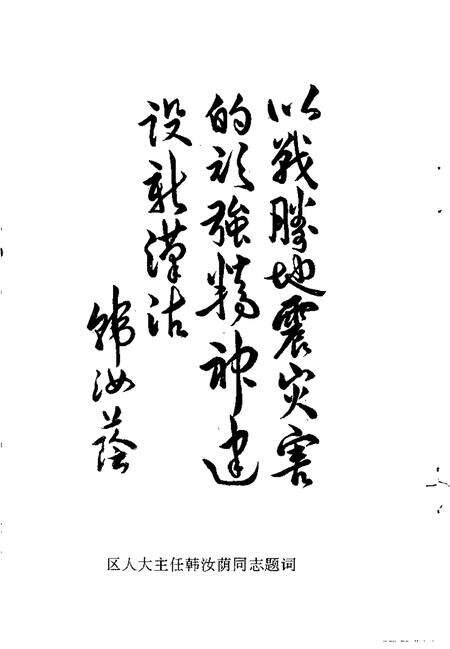 以戰勝地震灾害
的顽強精神建
设新漢沽
韩汝蔭
区人大主任韩汝荫同志题词